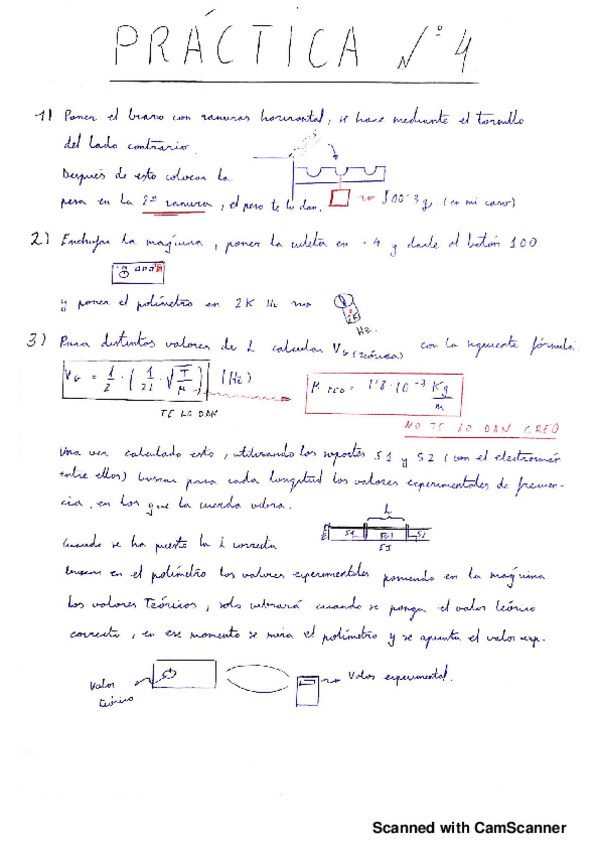 PRÁCTICA Nº 4
1) Poner el brazo con ranuras horizontal, se hace mediante el tornillo
del lado contrario.
Después de esto colocar la
pesa en la 2ª ranura, el peso te lo dan. 500'3 g. (en mi caso)
2) Enchufar la maquina, poner la ruleta en · 4 y darle al botón 100
y poner el polímetro en 2K Hz
2K
Hz.
3) Para distintos valores de L calcular V_G (teórica) con la siguiente fórmula
V_G = 1/2 · ( 1/2L · √(T/μ) ) (Hz)
μ TEO = 1'8 · 10⁻³ Kg/m
TE LO DAN
NO TE LO DAN CREO
Una vez calculado esto, utilizando los soportes S1 y S2 (con el electroimán
entre ellos) buscar para cada longitud los valores experimentales de frecuen-
cia, en los que la cuerda vibra.
L
S1 S2
Cuando se ha puesto la L correcta
buscas en el polímetro los valores experimentales poniendo en la maquina
los valores Teóricos, solo vibrará cuando se ponga el valor teórico
correcto, en ese momento se mira el polímetro y se apunta el valor exp.
Valor
teórico
Valor experimental.
Scanned with CamScanner